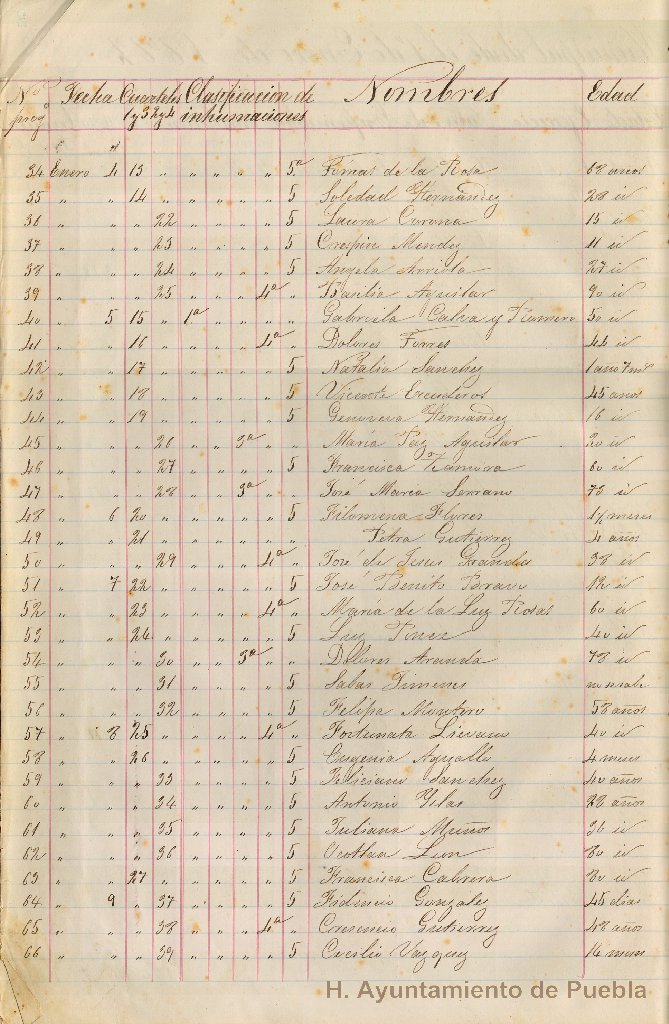 Nos Fecha Cuarteles Clasificacion de Nombres Edad
prog 1y3 2y4 inhumaciones
34 Enero 4 13 " " " " " 5.a Tomas de la Rosa 68 años
35 " " 14 " " " " " 5 Soledad Hernandez 28 id
36 " " " 22 " " " " 5 Laura Corona 15 id
37 " " " 23 " " " " 5 Crespin Mendez 11 id
38 " " " 24 " " " " 5 Angela Arriola 27 id
39 " " " 25 " " " 4a " Basilia Aguilar 90 id
40 " 5 15 " 1a " " " " Gabriela Calva y Romero 50 id
41 " " 16 " " " " 4a " Dolores Torres 44 id
42 " " 17 " " " " " 5 Natalia Sanchez 1 año 7 ms
43 " " 18 " " " " " 5 Vicente Escuderos 45 años
44 " " 19 " " " " " 5 Genoveva Hernandez 16 id
45 " " " 26 " " 3a " " Maria Paz Aguilar 20 id
46 " " " 27 " " " " 5 Francisca Zamora 60 id
47 " " " 28 " " 3a " " José Maria Serrano 78 id
48 " 6 20 " " " " " 5 Filomena Flores meses
49 " " 21 " " " " " " Petra Gutierrez 4 años
50 " " " 29 " " " 4a " José de Jesus Granda 38 id
51 " 7 22 " " " " " 5 José Benito Bravo 12 id
52 " " 23 " " " " 4a " Maria de la Luz Rosas 60 id
53 " " 24 " " " " " 5 Luz Ponce 40 id
54 " " " 30 " " 3a " " Dolores Aranda 78 id
55 " " " 31 " " " " 5 Sabas Jimenes no se sabe
56 " " " 32 " " " " 5 Felipa Montero 58 años
57 " 8 25 " " " " 4a " Fortunata 40 id
58 " " 26 " " " " " 5 Eugenia 4 meses
59 " " " 33 " " " " 5 Feliciano Sanchez 40 años
60 " " " 34 " " " " 5 Antonio Yslas 22 años
61 " " " 35 " " " " 5 Juliana Muños 36 id
62 " " " 36 " " " " 5 Ocotlan Leon 80 id
63 " " 27 " " " " " 5 Francisca Cabrera 80 id
64 " 9 " 37 " " " " 5 Fidencio Gonzalez 45 dias
65 " " " 38 " " " 4a " Cresencio Gutierrez 48 años
66 " " " 39 " " " " 5 Vazquez 14 meses
H. Ayuntamiento de Puebla